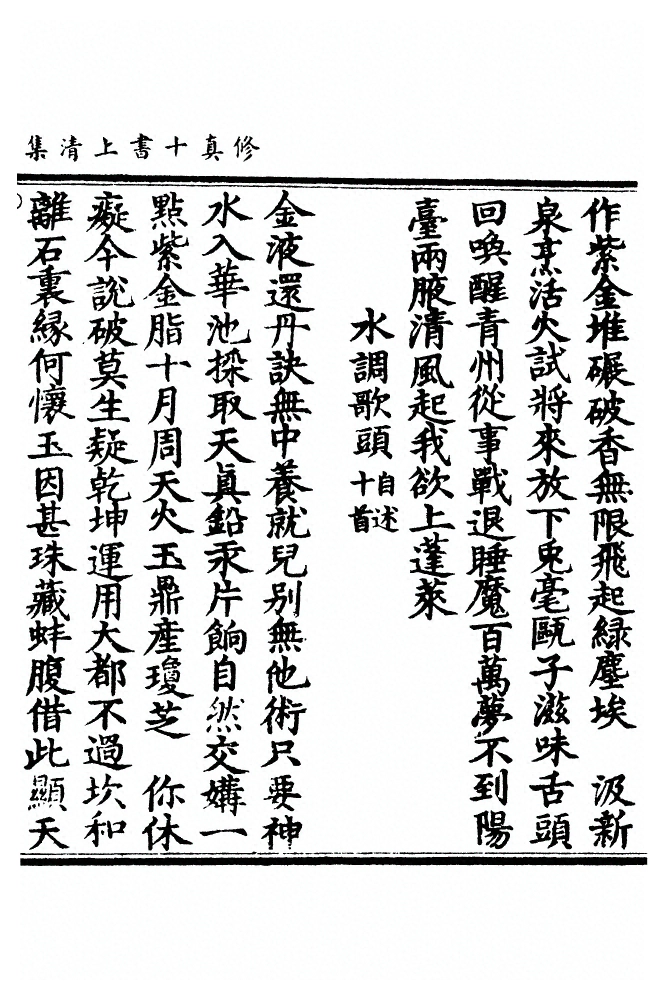 修真十書上清集
作紫金堆碾破香無限飛起綠塵埃　汲新
泉烹活火試將來放下兎毫甌子滋味舌頭
回喚醒青州從事戰退睡魔百萬夢不到陽
臺兩腋清風起我欲上蓬萊
水調歌頭自述十首
金液還丹訣無中養就兒別無他術只要神
水入華池採取天真鉛汞片餉自然交媾一
點紫金脂十月周天火玉鼎產瓊芝　你休
癡今說破莫生疑乾坤運用大都不過坎和
離石裏緣何懷玉因甚珠藏蚌腹借此顯天